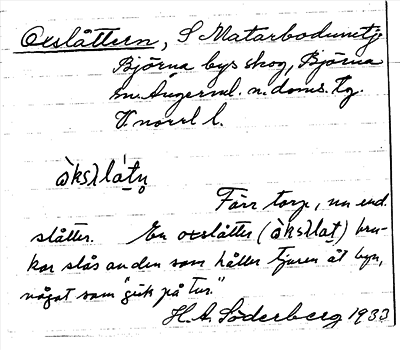 Oxslåttern, S Matarbodumetj.
Björna bys skog, Björna
sn. Ångerml. n. doms. tg.
V. norrl l.
ò̀ksʌlátn̥
Förr torp, nu end.
slåtter. En oxslåtter (ò̀ksʌlat) bru-
kar slås av den som håller tjuren åt byn,
något som "gick på tur."
H. A. Söderberg 1933